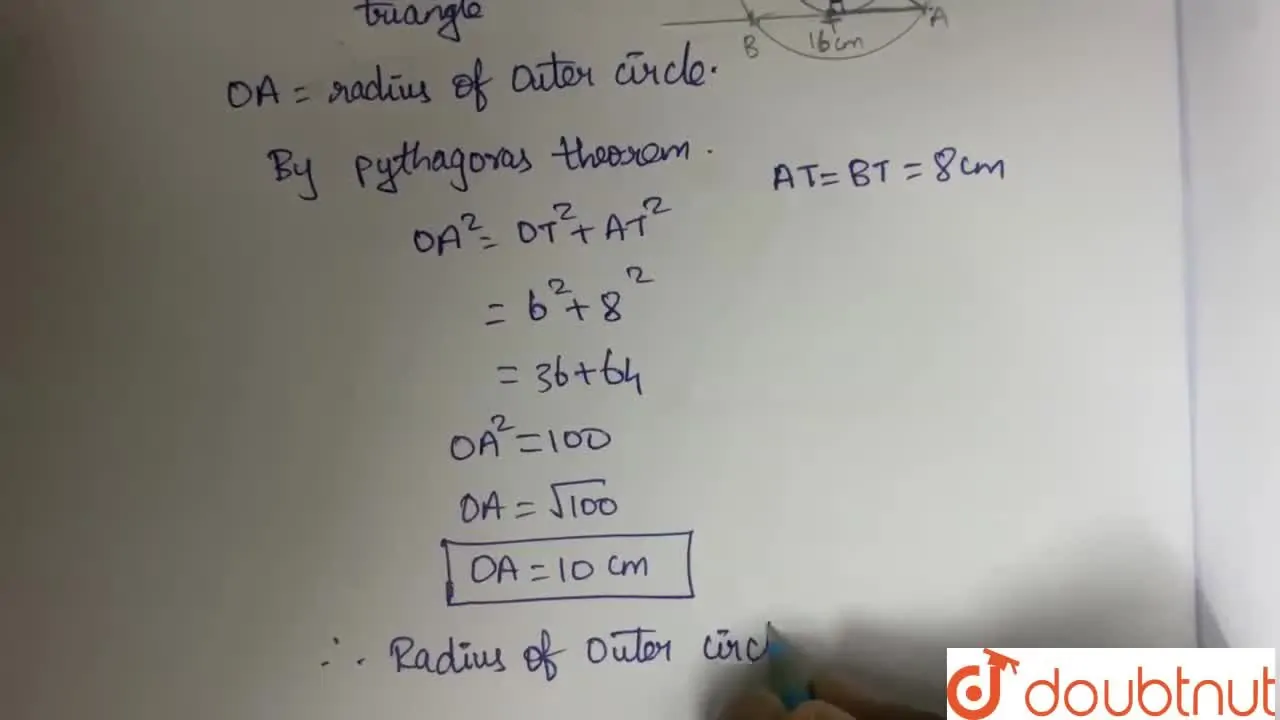 triangle
B T A
16cm
OA = radius of Outer circle.
By pythagoras theorem.
AT = BT = 8cm
OA² = OT² + AT²
= 6² + 8²
= 36 + 64
OA² = 100
OA = √100
OA = 10 cm
∴ Radius of Outer circl
doubtnut